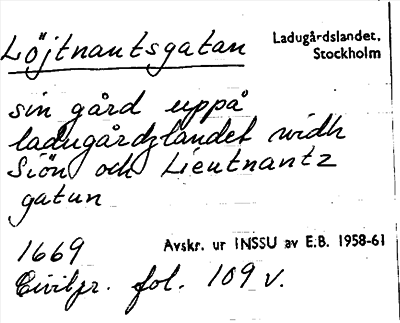 Löjtnantsgatan
Ladugårdslandet,
Stockholm
sin gård uppå
ladugårdzlandet widh
Siön och Lieutnantz
gatun
1669
Avskr. ur INSSU av E.B. 1958-61
Civilpr. fol. 109 v.